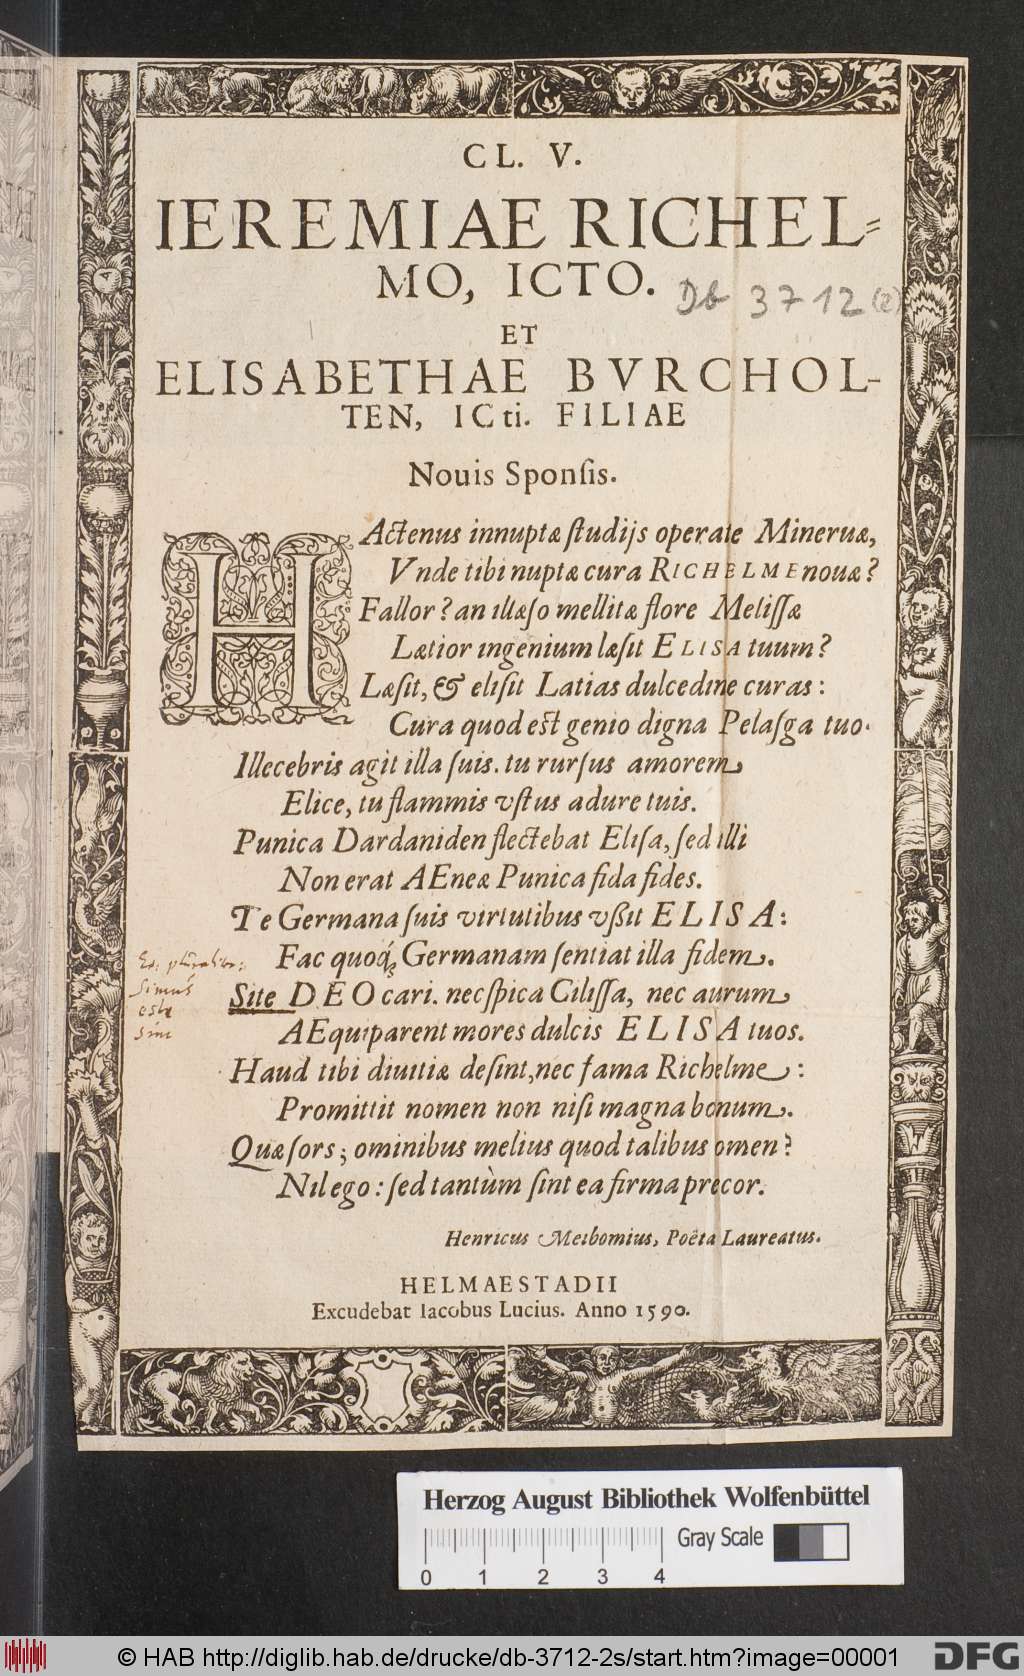 CL. V.
IEREMIAE RICHEL-
MO, ICTO.
Db 3712 (2)
ET
ELISABETHAE BVRCHOL-
TEN, ICti. FILIAE
Nouis Sponſis.
HActenus innuptæ ſtudijs operate Mineruæ,
Vnde tibi nuptæ cura RICHELME nouæ?
Fallor? an illæſo mellitæ flore Meliſſæ
Lætior ingenium læſit ELISA tuum?
Læſit, & eliſit Latias dulcedine curas:
Cura quod eſt genio digna Pelaſga tuo.
Illecebris agit illa ſuis. tu rurſus amorem
Elice, tu flammis vſtus adure tuis.
Punica Dardaniden flectebat Eliſa, ſed illi
Non erat AEneæ Punica fida fides.
Te Germana ſuis virtutibus vßit ELISA:
Fac quoq́ꝫ Germanam ſentiat illa fidem.
Site DEO cari. nec ſpica Ciliſſa, nec aurum
Simus
este
sint
AEquiparent mores dulcis ELISA tuos.
Haud tibi diuitiæ deſint, nec fama Richelme:
Promittit nomen non niſi magna bonum.
Quæ ſors; ominibus melius quod talibus omen?
Nil ego: ſed tantùm ſint ea firma precor.
Henricus Meibomius, Poëta Laureatus.
HELMAESTADII
Excudebat Iacobus Lucius. Anno 1590.
Herzog August Bibliothek Wolfenbüttel
Gray Scale
0 1 2 3 4
© HAB http://diglib.hab.de/drucke/db-3712-2s/start.htm?image=00001
DFG